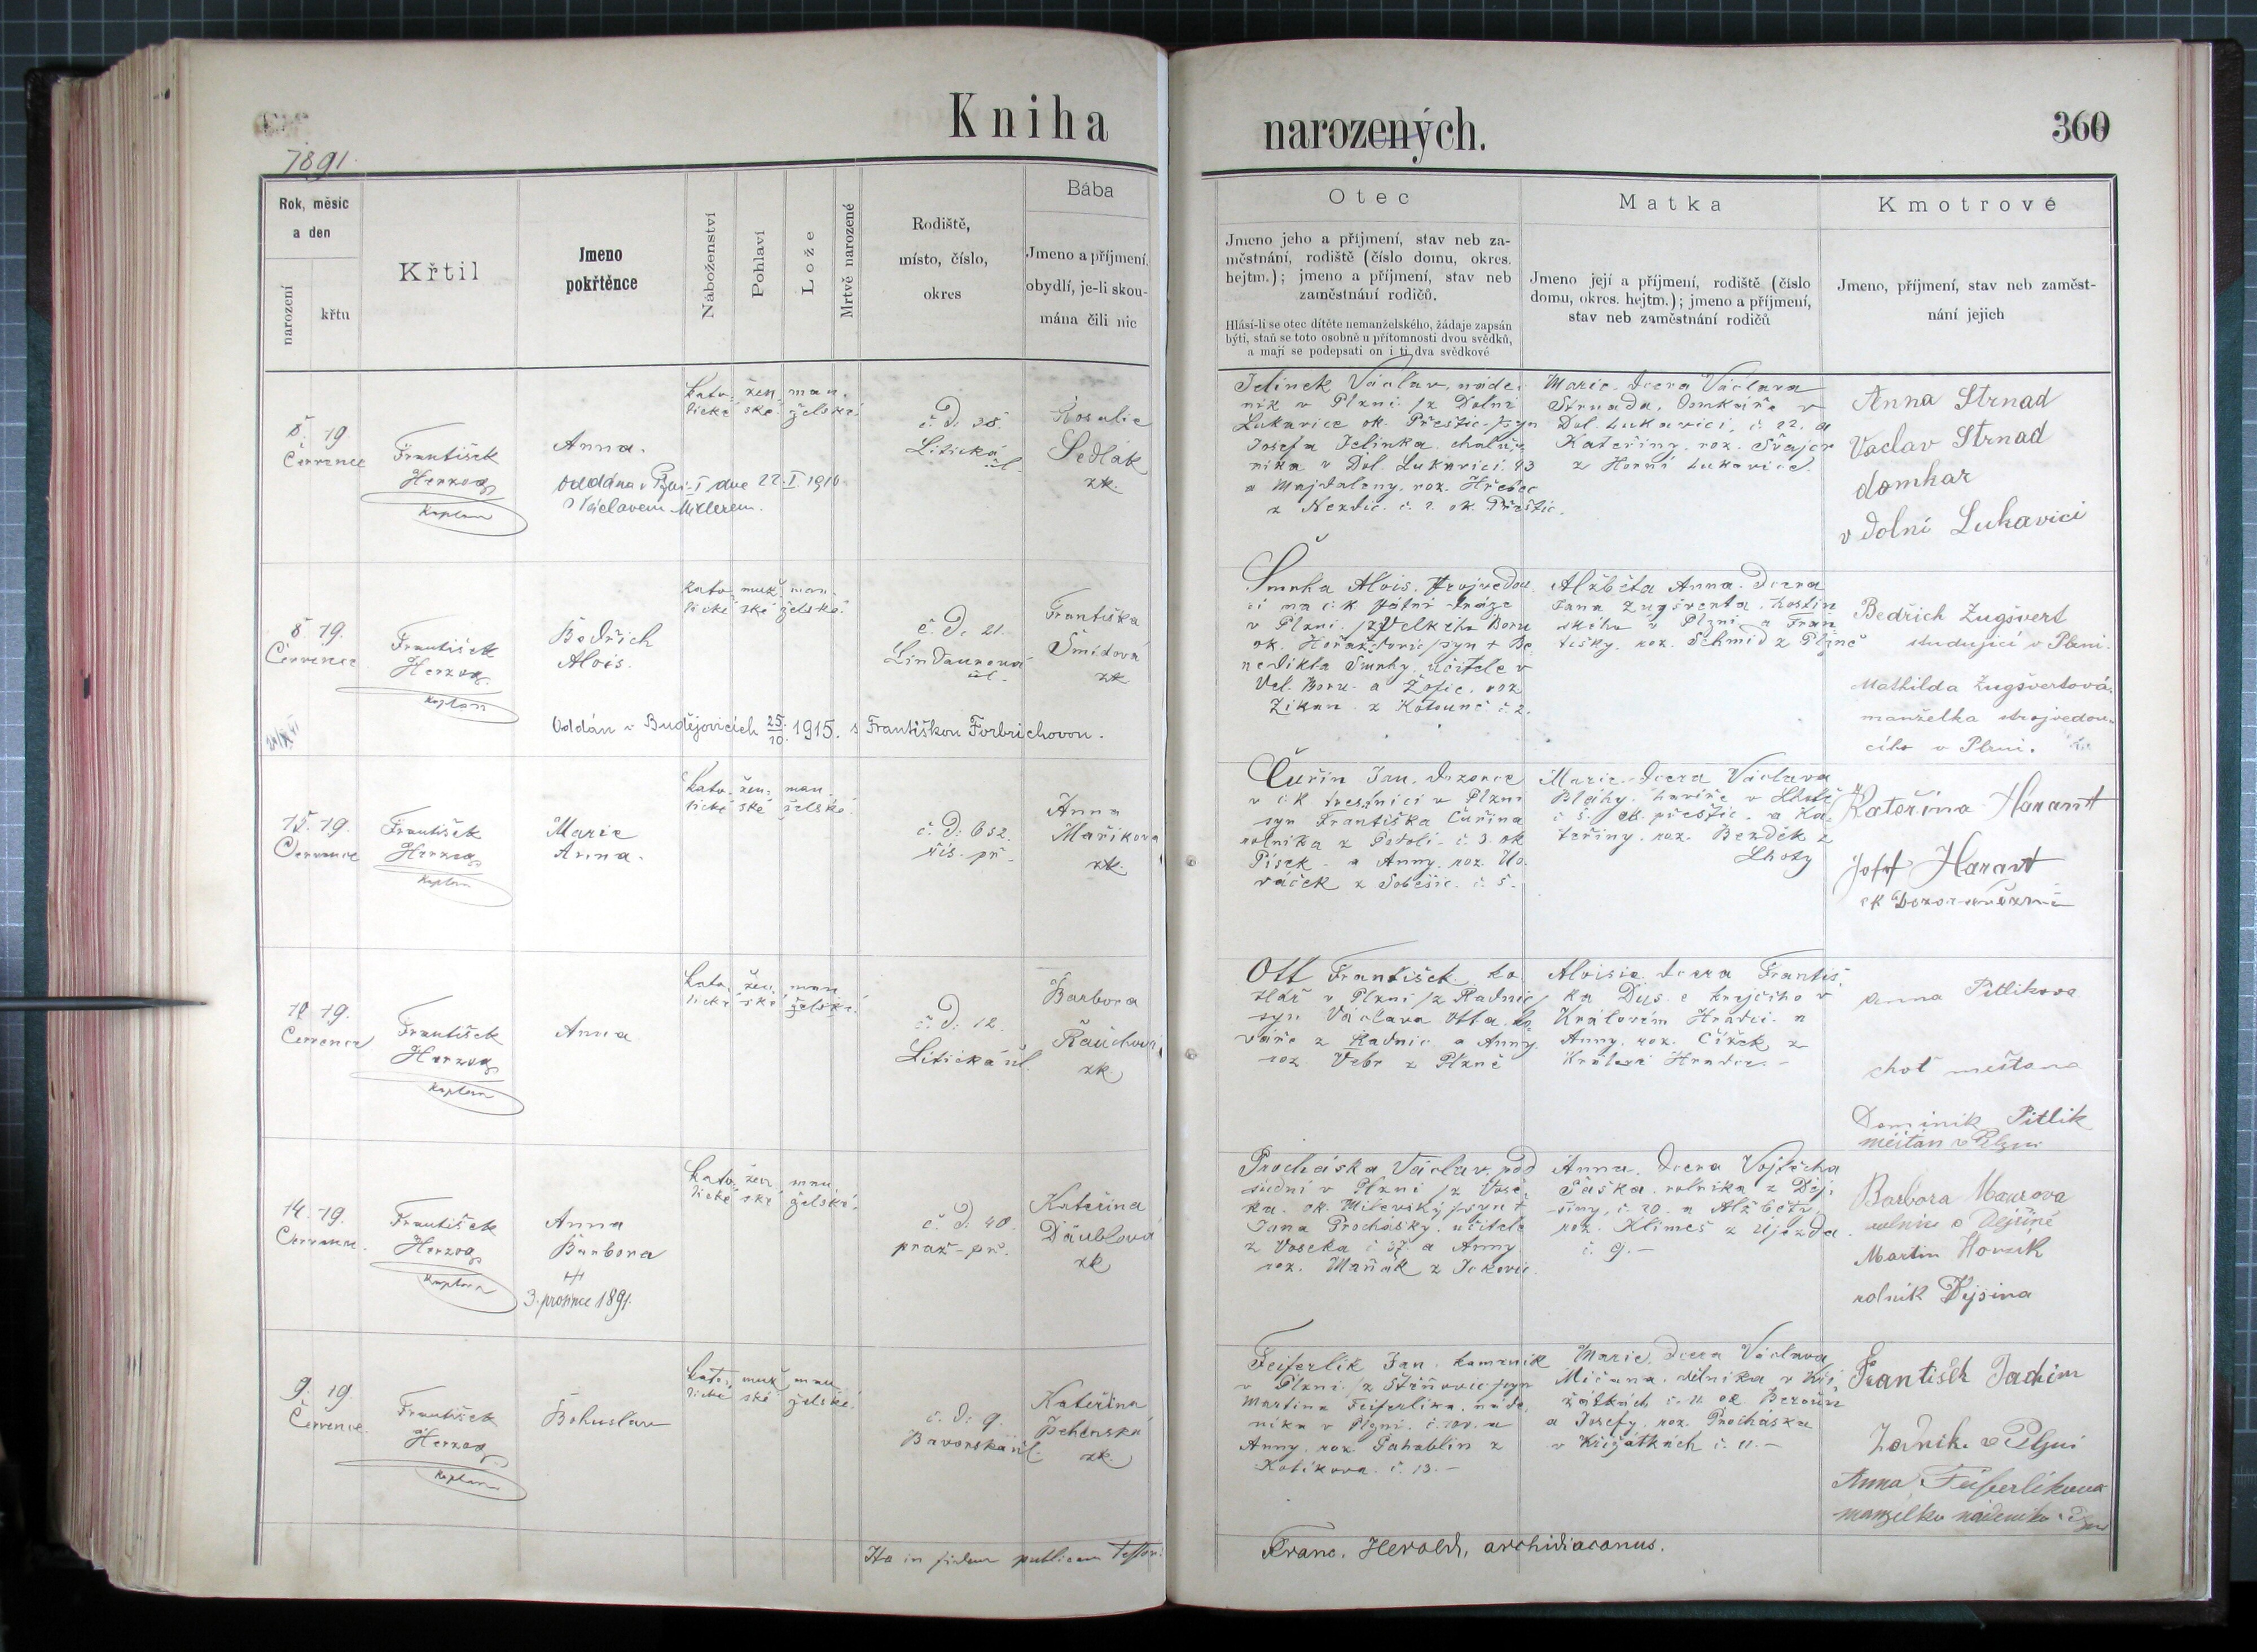 Kniha
narozených.
360
1891.
Rok, měsíc
a den
narození
křtu
Křtil
Jmeno
pokřtěnce
Náboženství
Pohlaví
Lože
Mrtvě narozené
Rodiště,
místo, číslo,
okres
Bába
Jmeno a příjmení,
obydlí, je-li skou-
mána čili nic
Otec
Jmeno jeho a příjmení, stav neb za-
městnání, rodiště (číslo domu, okres.
hejtm.); jmeno a příjmení, stav neb
zaměstnání rodičů.
Hlásí-li se otec dítěte nemanželského, žádaje zapsán
býti, staň se toto osobně u přítomnosti dvou svědků,
a mají se podepsati on i ti dva svědkové
Matka
Jmeno její a příjmení, rodiště (číslo
domu, okres. hejtm.); jmeno a příjmení,
stav neb zaměstnání rodičů
Kmotrové
Jmeno, příjmení, stav neb zaměst-
nání jejich
8. 19.
Července
František
Herzog
Kaplan
Anna.
Oddána v Plzni I dne 22. I. 1916
s Václavem Müllerem.
kato- žen- man-
lické ské želské
č. d. 38.
Litická
ul.
Rosalie
Sedlák
zk.
Jelínek Václav, náde-
ník v Plzni /z Dolní
Lukavice ok. Přeštic/ syn
Josefa Jelínka, chalup-
níka v Dol. Lukavici 43
a Majdaleny, roz. Hřebec
z Nezdic č. 2. ok. Přeštic.
Marie, dcera Václava
Strnada, domkáře v
Dol. Lukavici, č. 22. a
Kateřiny, roz. Švajcr
z Horní Lukavice.
Anna Strnad
Vaclav Strnad
domkar
v dolní Lukavici
8. 19.
Července
František
Herzog
Kaplan
Bedřich
Alois.
kato- muž- man-
lické ské želské
č. d. 21.
Lindaurova
ul.
Františka
Šmídová
zk.
Oddán v Budějovicích 25/10. 1915. s Františkou Forbrichovou.
Smrha Alois, strojvedou-
cí na c. k. státní dráze
v Plzni /z Velkého Boru
ok. Horažďovic/ syn + Be-
nedikta Smrhy, učitele v
Vel. Boru a Žofie, roz.
Zikan z Kotouně č. 2.
Alžběta Anna, dcera
Jana Zugšverta, hostin-
ského v Plzni a Fran-
tišky, roz. Schmid z Plzně
Bedřich Zugšvert
studující v Plzni.
Mathilda Zugšvertová.
manželka strojvedou-
cího v Plzni.
15. 19.
Července
František
Herzog
Kaplan
Marie
Anna.
kato- žen- man-
lické ské želské
č. d. 652.
říš. př.
Anna
Maříkova
zk.
Čuřín Jan, dozorce
v c. k. trestnici v Plzni
syn Františka Čuřína
rolníka z Podolí č. 3. ok
Písek a Anny, roz. Ho-
váček z Soběšic č. 5.
Marie, dcera Václava
Bláhy, havíře v Lhotě
č. 5. ok. přeštic. a Ka-
teřiny, roz. Bezděk z
Lhoty
Kateřina Harant
Josef Harant
18. 19.
Července
František
Herzog
Kaplan
Anna
kato- žen- man-
lické ské želské
č. d. 12.
Litická ul.
Barbora
Raúchova
zk.
Ott František, ko-
lář v Plzni /z Radnic/
syn Václava Otta, ko-
váře z Radnic a Anny,
roz. Vebr z Plzně
Aloisie, dcera Františ-
ka Dus e krejčího v
Králověm Hradci a
Anny, roz. Čížek z
Králové Hradce. –
Anna Pitlikova
choť měšťana
Dominik Pitlik
měšťan v Plzni
14. 19.
Července.
František
Herzog
Kaplan
Anna
Barbora
3. prosince 1891.
kato- žen- man-
lické ské želské
č. d. 40.
praž- př.
Kateřina
Däublova
zk
Procháska Václav, pod-
ok. Milevský / syn +
Jana Prochásky, učitele
z Voseka č. 37. a Anny
roz. Maňák z Jckovic.
Anna, dcera Vojtěcha
Paška, rolníka z Dej-
šiny, č. 20. a Alžběty,
roz. Klimeš z Újezda
č. 9. –
Barbora Maurova
rolnice v Dejšině
Martin Horack
rolník Dejsina
9. 19.
Července.
František
Herzog
Kaplan
Bohuslav
kato- muž- man-
lické ské želské
č. d. 9.
Bavorská ul.
Kateřina
Pehenská
zk.
Feiferlík Jan, komínník
v Plzni /z Stěňovic/ syn
Martina Feiferlíka, náde-
níka v Plzni, a
Anny, roz. Pahoblin z
Kotíkova č. 13. –
Marie, dcera Václava
Mičana, dělníka v Kři-
žátkách č. 11 ok Beroun
a Josefy, roz. Procháska
v Křižátkách č. 11. –
František Jachim
Zedník v Plzni
Anna Feiferlíkova
manzelka nádenika v Plzni
Ita in fidem publicam Testor:
Franc. Herold, archidiaconus.